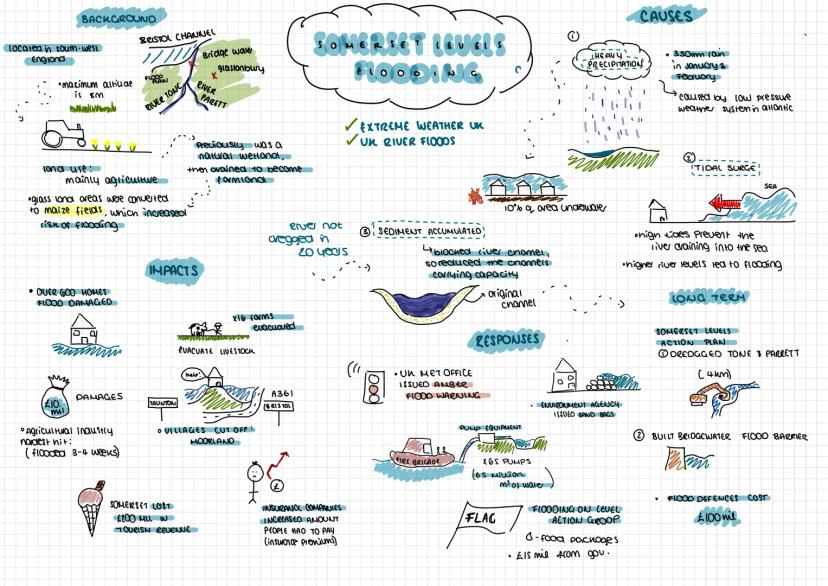 SOMERSET LEVELS
FLOODING
✓ EXTREME WEATHER UK
✓ UK RIVER FLOODS
BACKGROUND
Located in south-west
England
• maximum altitude
is 8m
BRISTOL CHANNEL
Bridge water
x Glastonbury
FLOOD
PLAIN
RIVER TONE
RIVER
PARETT
land use:
mainly agriculture
Previously was a
natural wetland,
then drained to become
farmland
• grass land areas were converted
to maize fields, which increased
risk of flooding
CAUSES
①
HEAVY
PRECIPITATION
• 350mm rain
in January &
February
caused by low pressure
weather system in atlantic
10% of area underwater
②
TIDAL SURGE
SEA
• high tides prevent the
river draining into the sea
• higher river levels led to flooding
River not
dredged in
20 years
③ SEDIMENT ACCUMULATED
blocked river channel,
so reduced the channels
carrying capacity
original
channel
IMPACTS
• OVER 600 HOMES
FLOOD DAMAGED
x16 farms
evacuated
EVACUATE LIVESTOCK
£10
mil
DAMAGES
• Agricultural industry
hardest hit:
(flooded 3-4 weeks)
Help!
TAUNTON
A361
BRISTOL
• VILLAGES CUT OFF:
MOORLAND
SOMERSET LOST
£200 MIL IN
TOURISM REVENUE
£
INSURANCE COMPANIES
INCREASED AMOUNT
PEOPLE HAD TO PAY
(insurance premiums)
RESPONSES
• UK MET OFFICE
ISSUED AMBER
FLOOD WARNING
• ENVIRONMENT AGENCY
ISSUED SAND BAGS
FIRE BRIGADE
PUMP EQUIPMENT
x65 PUMPS
(65 million
m³ of water)
FLAG
FLOODING ON LEVEL
ACTION GROUP
- food packages
• £15 mil from gov.
LONG TERM
SOMERSET LEVELS
ACTION PLAN
① DREDGED TONE & PARRETT
(4km)
② BUILT BRIDGEWATER FLOOD BARRIER
• FLOOD DEFENCES COST
£100 mil